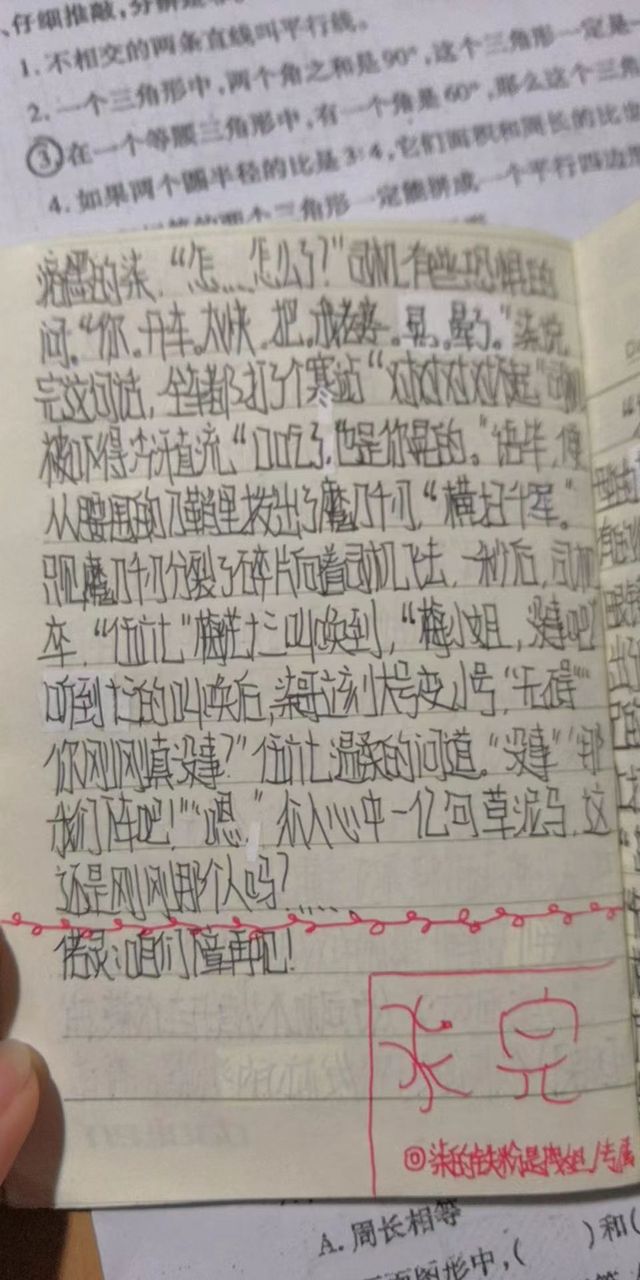 、仔细推敲,分辨
1. 不相交的两条直线叫平行线。
2. 一个三角形中,两个角之和是90°,这个三角形一定是
③在一个等腰三角形中,有一个角是60°,那么这个三角
4. 如果两个圆半径的比是3:4,它们面积和周长的比也
两个三角形一定能拼成一个平行四边形
的柒,“怎....怎么了?”司机有些恐惧的
问。“你。开车。太快。把。我老婆。晃。晕了。”柒说
完这句话,全车都打了个寒站“对对对对对不起”司机
被吓得汗直流“口口吃了,也是你晃的。”语毕,便
从腰围的刀鞘里拨出了魔刀千刃,“横扫千军”
只见魔刀千刃分裂了碎片向着司机飞去,一秒后,司机
卒,“伍六七”梅花十三叫唤到,“梅小姐,没事吧?”
听到十三的叫唤后,柒哥立刻大号变小号,“无碍”“
你刚刚真没事?”伍六七温柔的问道。“没事”“那
我们下车吧!”“嗯,”众人心中一亿句草泥马,这
还是刚刚那个人吗?.....
偌灵:咱们下章再吧!
◎柒的铁粉是
A. 周长相等
图形中,( )和(